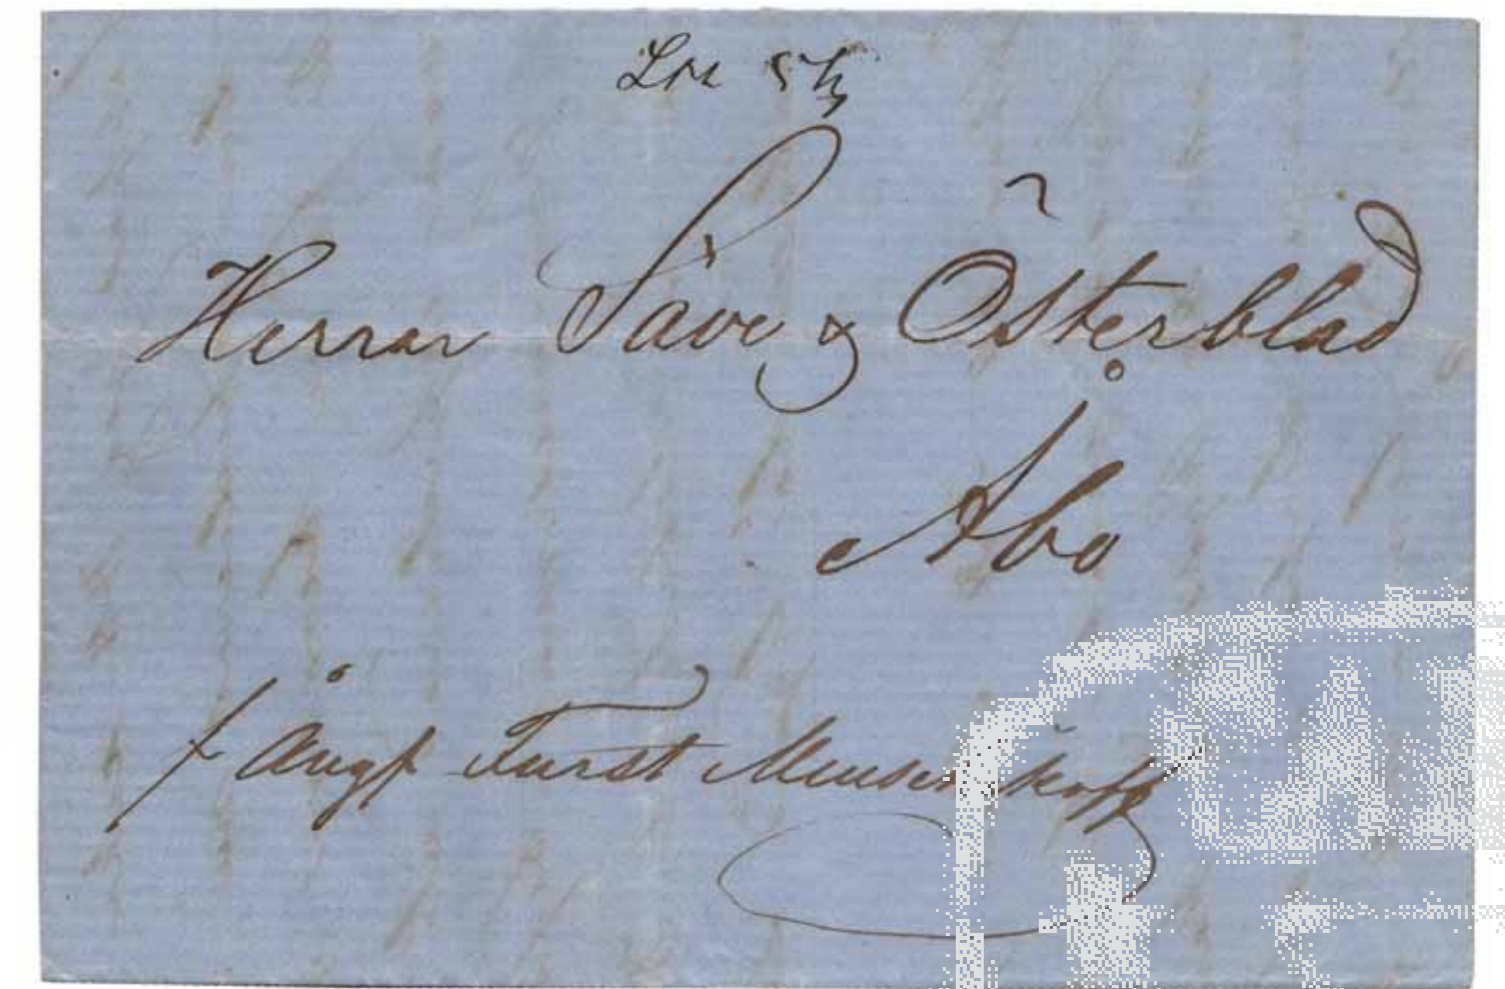 Herrar Säve & Österblad
Åbo
p Ångf Furst Menschikoff